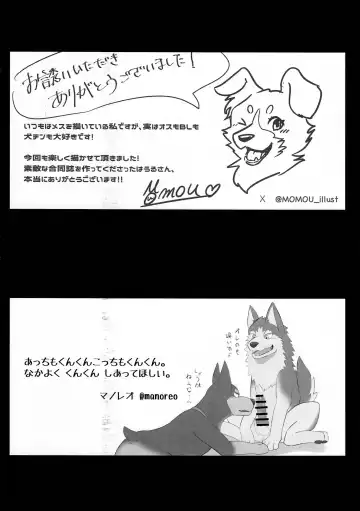 お誘いいただき
ありがとうございました!
いつもはメスを描いている私ですが、実はオスもBLも
犬チンも大好きです!
今回も楽しく描かせて頂きました!
素敵な合同誌を作ってくださったはるるさん、
本当にありがとうございます!!
MOMOU♡
X @MOMOU_illust
あっちもくんくんこっちもくんくん。
なかよく くんくん しあってほしい。
マノレオ @manoreo